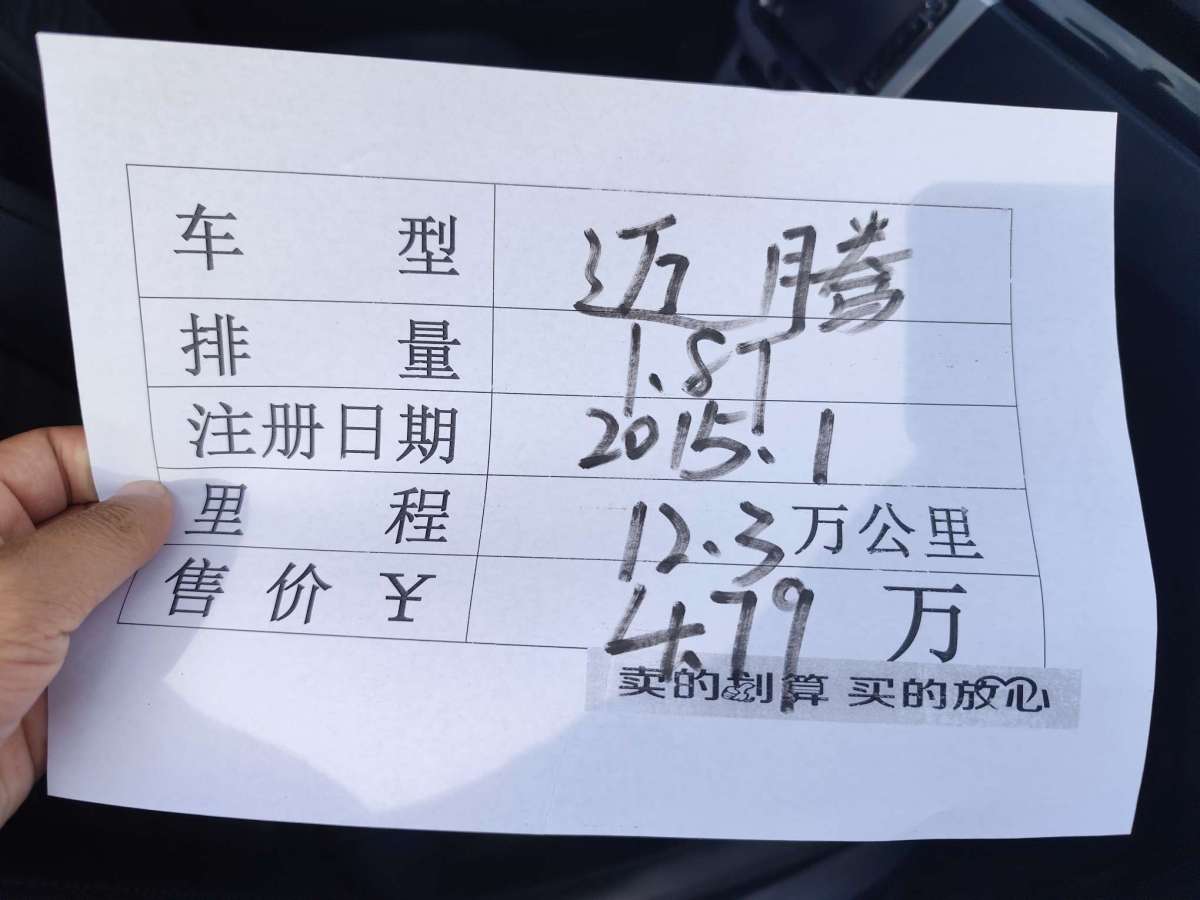 车型 迈腾
排量 1.8T
注册日期 2015.1
里程 12.3万公里
售价¥ 4.79万
卖的划算 买的放心